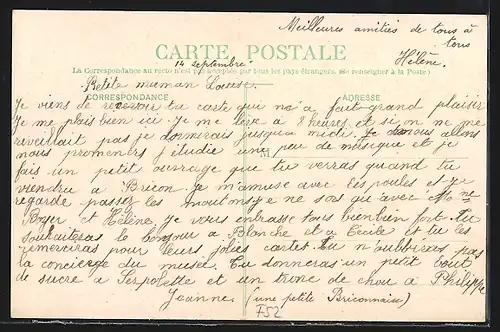 Meilleures amitiés de tous à
tous
Hélène.
CARTE POSTALE
14 septembre
(La Correspondance au recto n'est pas acceptée par tous les pays étrangers. (Se renseigner à la Poste.)
Petite maman Louise,
CORRESPONDANCE
ADRESSE
Je viens de recevoir ta carte qui m'a fait grand plaisir
Je me plais bien ici. Je me lève à 8 heures et si on ne me
reveillait pas je dormirais jusqu'à midi. Je nous allons
nous promener j'étudie une peu de musique et je
M
fais un petit ouvrage que tu verras quand tu
viendra à Bricon. Je m'amuse avec les poules et je
regarde passer les moutons je ne sors qu'avec Mme
Boyer et Hélène. Je vous embrasse tous bien bien fort. Tu
souhaiteras le bonjour à Blanche et à Cécile et tu les
remercieras pour leurs jolies cartes. Tu n'oubliras pas
la concierge du musée. Tu donneras un petit bout
de sucre à Serpolette et un tronc de chou à Philippe
Jeanne (une petite Briconnaise)
F52